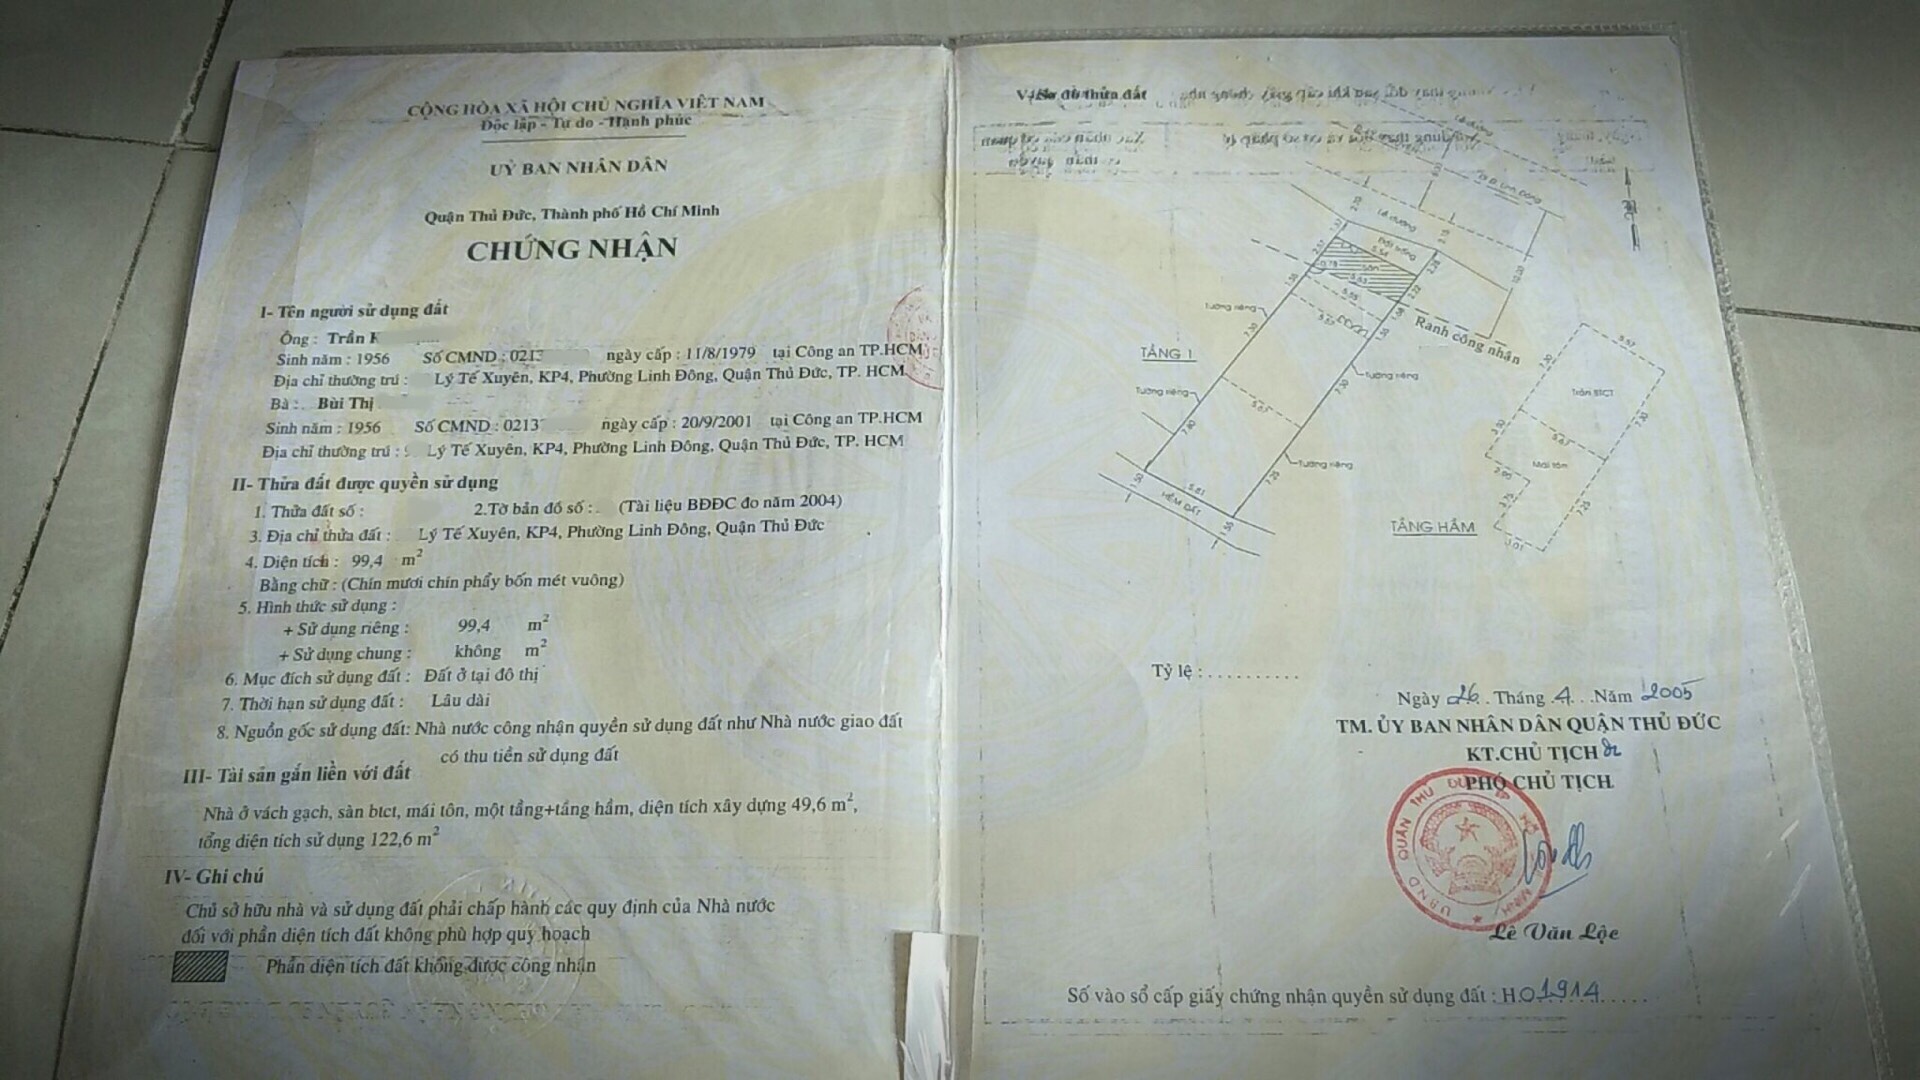 CỘNG HÒA XÃ HỘI CHỦ NGHĨA VIỆT NAM
Độc lập - Tự do - Hạnh phúc
UỶ BAN NHÂN DÂN
Quận Thủ Đức, Thành phố Hồ Chí Minh
CHỨNG NHẬN
I- Tên người sử dụng đất
Ông : Trần K
Sinh năm : 1956 Số CMND : 0213 ngày cấp : 11/8/1979 tại Công an TP.HCM
Địa chỉ thường trú : Lý Tế Xuyên, KP4, Phường Linh Đông, Quận Thủ Đức, TP. HCM
Bà : Bùi Thị
Sinh năm : 1956 Số CMND : 0213 ngày cấp : 20/9/2001 tại Công an TP.HCM
Địa chỉ thường trú : Lý Tế Xuyên, KP4, Phường Linh Đông, Quận Thủ Đức, TP. HCM
II- Thửa đất được quyền sử dụng
1. Thửa đất số : 2.Tờ bản đồ số : (Tài liệu BĐĐC đo năm 2004)
3. Địa chỉ thửa đất : Lý Tế Xuyên, KP4, Phường Linh Đông, Quận Thủ Đức
4. Diện tích : 99,4 m²
Bằng chữ : (Chín mươi chín phẩy bốn mét vuông)
5. Hình thức sử dụng :
+ Sử dụng riêng : 99,4 m²
+ Sử dụng chung : không m²
6. Mục đích sử dụng đất : Đất ở tại đô thị
7. Thời hạn sử dụng đất : Lâu dài
8. Nguồn gốc sử dụng đất: Nhà nước công nhận quyền sử dụng đất như Nhà nước giao đất
có thu tiền sử dụng đất
III- Tài sản gắn liền với đất
Nhà ở vách gạch, sàn btct, mái tôn, một tầng+tầng hầm, diện tích xây dựng 49,6 m²,
tổng diện tích sử dụng 122,6 m²
IV- Ghi chú
Chủ sở hữu nhà và sử dụng đất phải chấp hành các quy định của Nhà nước
đối với phần diện tích đất không phù hợp quy hoạch
Phần diện tích đất không được công nhận
V- Sơ đồ thửa đất
Lề đường
Đ. Linh Đông
Lề đường
Đất trống
5.54
Sân
5.63
Ranh công nhận
Tường riêng
TẦNG 1
Tường riêng
Tường riêng
Tường riêng
7.30
7.30
5.67
7.80
7.25
5.81
HẺM ĐẤT
5.67
7.30
Trần BTCT
7.30
5.67
3.30
Mái tôn
7.25
3.01
TẦNG HẦM
Tỷ lệ : ..........
Ngày 26 Tháng 4 Năm 2005
TM. ỦY BAN NHÂN DÂN QUẬN THỦ ĐỨC
KT.CHỦ TỊCH
PHÓ CHỦ TỊCH
Lê Văn Lộc
Số vào sổ cấp giấy chứng nhận quyền sử dụng đất : H.01914